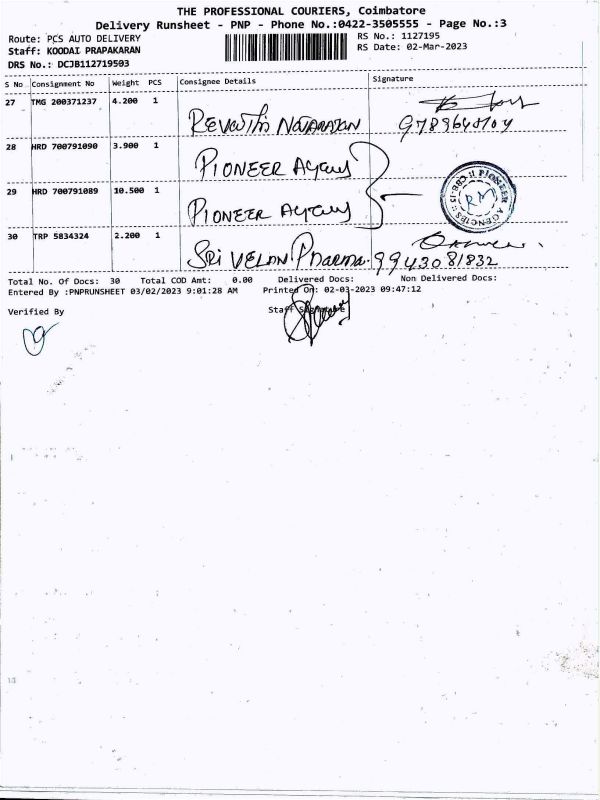 THE PROFESSIONAL COURIERS, Coimbatore
Delivery Runsheet - PNP - Phone No.:0422-3505555 - Page No.:3
Route: PCS AUTO DELIVERY
RS No.: 1127195
Staff: KOODAI PRAPAKARAN
RS Date: 02-Mar-2023
DRS No.: DCJB112719503
S No Consignment No Weight PCS Consignee Details Signature
27 TMG 200371237 4.200 1 REVATHI NATARAJAN
28 HRD 700791090 3.900 1 PIONEER Agency
29 HRD 700791089 10.500 1 PIONEER Agency
PIONEER AGENCIES
30 TRP 5834324 2.200 1 SRI VELAN PHARMA. 9943081832
Total No. Of Docs: 30 Total COD Amt: 0.00 Delivered Docs: Non Delivered Docs:
Entered By :PNPRUNSHEET 03/02/2023 9:01:28 AM Printed On: 02-03-2023 09:47:12
Verified By Staff Signature